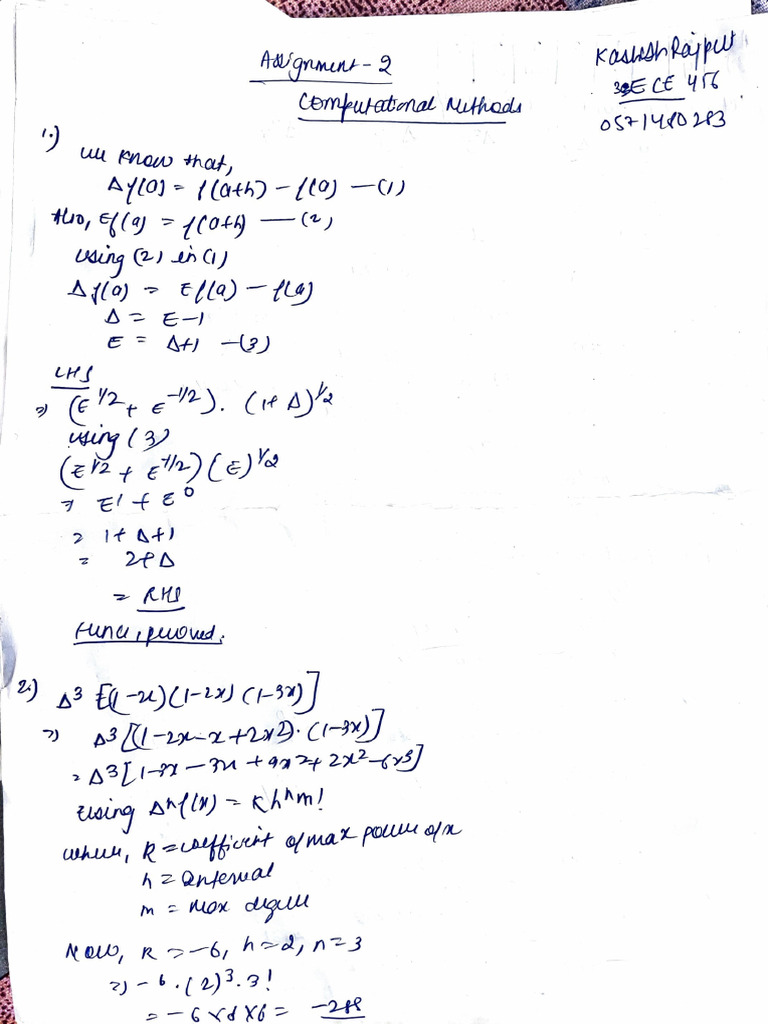 Assignment - 2
Computational Methods
Kashish Rajput
3ECE 456
05714802 83
1.) We know that,
Δf(a) = f(a+h) - f(a) —(1)
Also, Ef(a) = f(a+h) —(2)
using (2) in (1)
Δf(a) = Ef(a) - f(a)
Δ = E-1
E = Δ+1 —(3)
LHS
⇒ (E^1/2 + E^-1/2). (1+Δ)^1/2
using (3)
(E^1/2 + E^-1/2)(E)^1/2
⇒ E^1 + E^0
= 1+Δ+1
= 2+Δ
= RHS
Hence, proved.
2.) Δ^3 [(1-x)(1-2x)(1-3x)]
⇒ Δ^3[(1-2x-x+2x^2).(1-3x)]
= Δ^3[1-3x-3x+9x^2+2x^2-6x^3]
Using Δ^n f(x) = Kh^n m!
where, K = coefficient of max power of x
h = interval
m = max degree
Now, K = -6, h=2, n=3
⇒ -6.(2)^3.3!
= -6×8×6 = -288